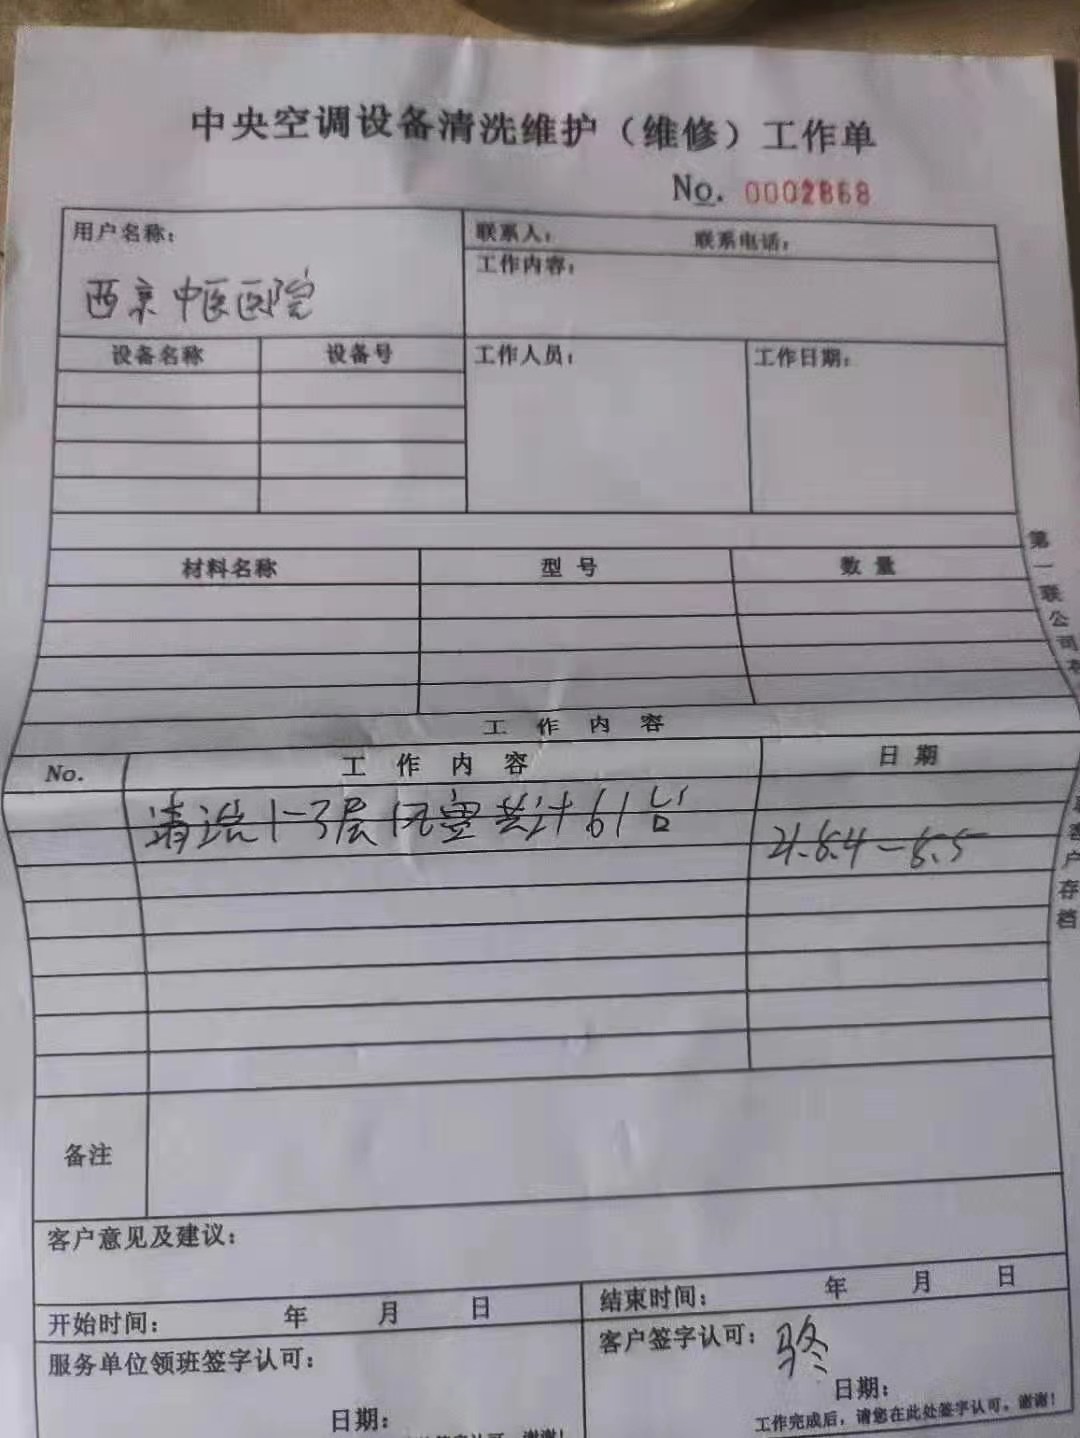 中央空调设备清洗维护（维修）工作单
No. 0002868
用户名称：
西京中医医院
联系人： 联系电话：
工作内容：
设备名称 设备号
工作人员： 工作日期：
材料名称 型号 数量
工作内容
No. 工作内容 日期
清洗1-3层风盘共计61台
21.5.4-5.5
备注
客户意见及建议：
开始时间： 年 月 日
结束时间： 年 月 日
服务单位领班签字认可：
日期：
客户签字认可：
日期：
工作完成后，请您在此处签字认可。谢谢！
第一联公司存
客户存档